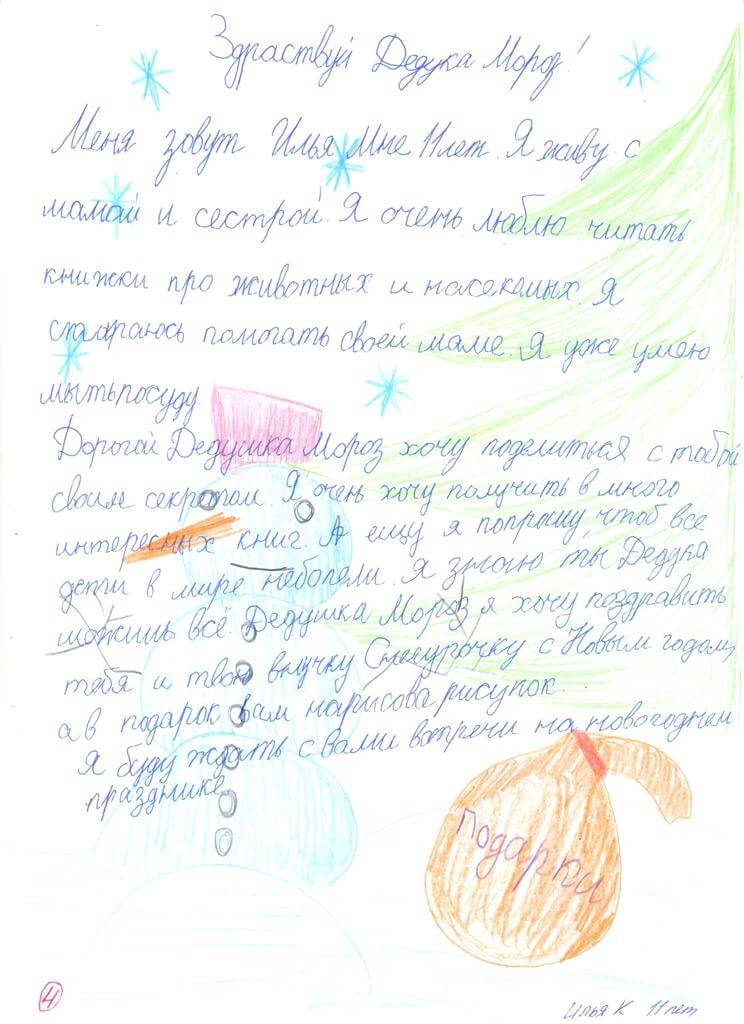 Здраствуй Дедука Мороз!
Меня зовут Илья Мне 11 лет. Я живу с
мамой и сестрой. Я очень люблю читать
книжки про животных и насекомых. Я
стараюсь помогать своей маме. Я уже умею
мыть посуду
Дорогой Дедушка Мороз хочу поделиться с тобой
своим секретом. Я очень хочу получить в много
интересных книг. А ещу я попрошу, чтоб все
дети в мире неболели. Я знаю ты, Дедука
можишь всё. Дедушка Мороз я хочу поздравить
тебя и твою внучку Снегурочку с Новым годом,
а в подарок вам нарисова рисунок.
Я буду ждать с вами встречи на новогоднем
празднике
Подарки
4
Илья К 11 лет